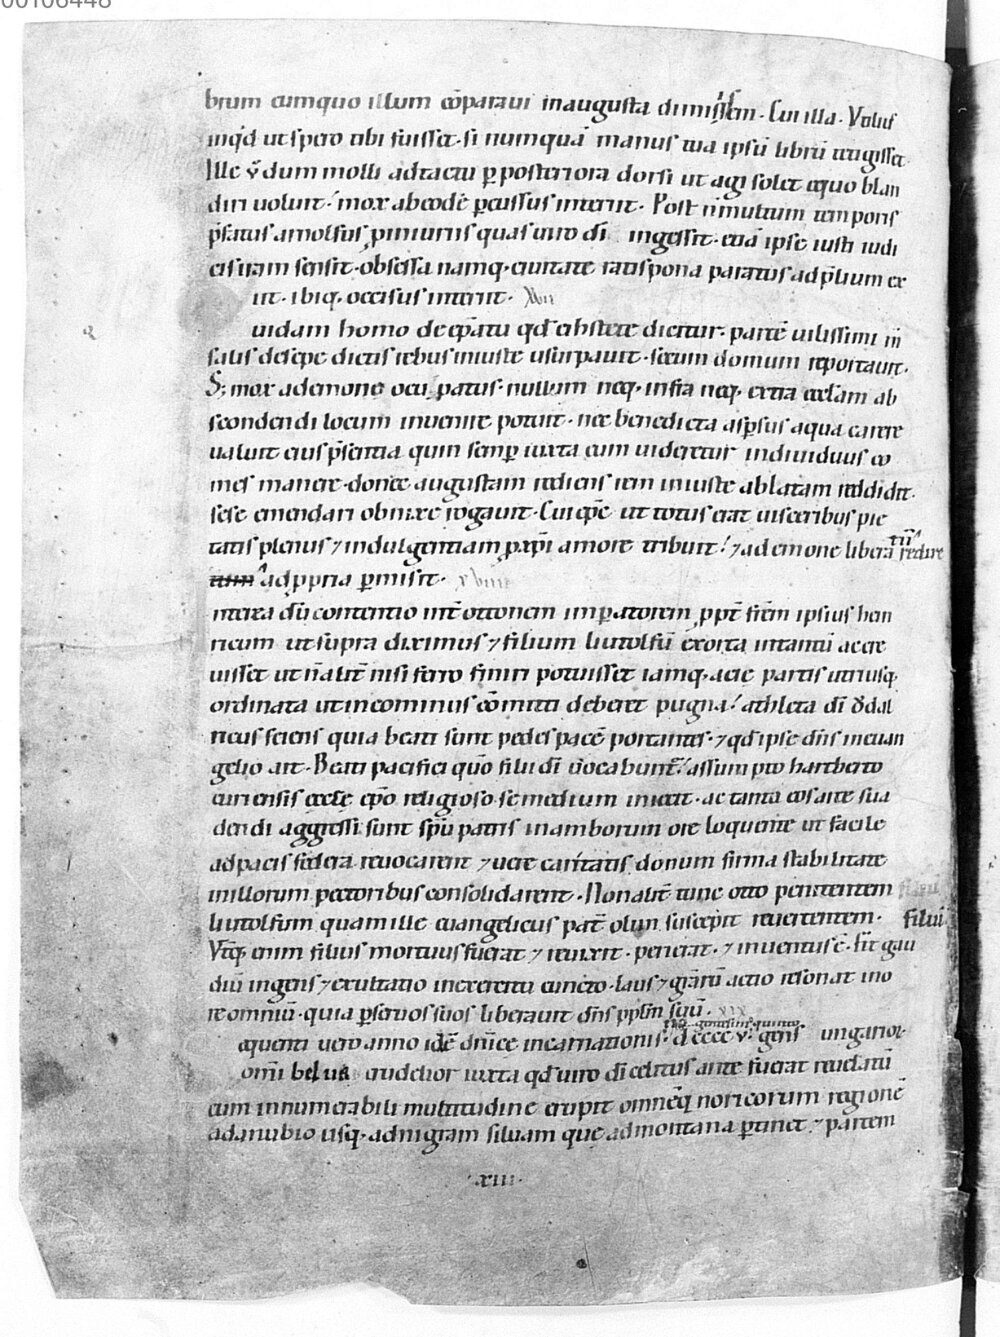 00106448
brum cumquo illum cōparaui in augusta dimissem. Cui illa. Vtilius
inqd ut spero tibi fuisset. si numquā manus tua ipsū librū tetigisset.
Ille v̄ dum molli adtactu p̱ posteriora dorsi ut agi solet equo blan
diri uoluit. mox ab eodē p̱cussus interiit. Post n̄ multum temporis
p̄fatus arnolfus, p iniuriis quas uiro dī ingessit. etiā ipse iusti iudi
cis iram sensit. obsessa namq; ciuitate ratispona paratus ad p̄lium ex
iit. ibiq; occisus interiit. XVII
uidam homo de ep̄atu qd eihstete dicitur. partē uilissimi in
salis de sepe dictis rebus iniuste usurpauit. secum domum reportauit.
S; mox a demone occupatus. nullum neq; infra neq; extra eccl̄am ab
scondendi locum inuenire potuit. nec benedicta asp̱sus aqua carere
ualuit eius p̄sentia quin semp̱ iuxta eum uideretur indiuiduus co
mes manere. donec augustam rediens rem iniuste ablatam reddidit.
sese emendari obnixe rogauit. Cui ep̄c ut totus erat uisceribus pie
tatis plenus ⁊ indulgentiam p xp̄i amore tribuit. ⁊ a demone liberatū redire
eum ad ppria p̱misit. xviii
nterea dū contentio int̄ ottonem imp̱atorem, ppt̄ fr̄em ipsius hein
ricum ut supra diximus ⁊ filium liutolfū exorta intantū accre
uisset ut n̄ alit̄ nisi ferro finiri potuisset iamq; acie partis utriusq;
ordinata ut in cominus cōmitti deberet pugna. athleta dī ŏdal
ricus sciens quia beati sunt pedes pacē portantes. ⁊ qd ipse dn̄s in euan
gelio ait. Beati pacifici qm̄ filii dī uocabunt̄. assumpto hartberto
curiensis eccl̄ę ep̄o religioso se medium iniecit. ac tanta eos arte sua
dendi aggressi sunt sp̄u patris in amborum ore loquente ut facile
ad pacis fędera reuocarent ⁊ uere caritatis donum firma stabilitate
in illorum pectoribus consolidarent. Non alit̄ tunc otto penitentem
liutolfum quam ille euangelicus pat̄ olim suscepit reuertentem. filiū
Vtq; enim filius mortuus fuerat ⁊ reuixit. perierat. ⁊ inuentus ē. fit gau
diū ingens ⁊ exultatio in exercitu cuncto. laus ⁊ gr̄arū actio resonat in o
re omniū. quia p̱ seruos suos liberauit dn̄s ppl̄m suū. XIX
equenti uero anno idē dn̄ice incarnationis. dcccc v. gens ungaror̄
omī belua crudelior iuxta qd uiro dī celitus ante fuerat reuelatū
cum innumerabili multitudine erupit omnēq; noricorum regionē
a danubio usq; ad nigram siluam quę ad montana p̱tinet. ⁊ partem
.xiii.